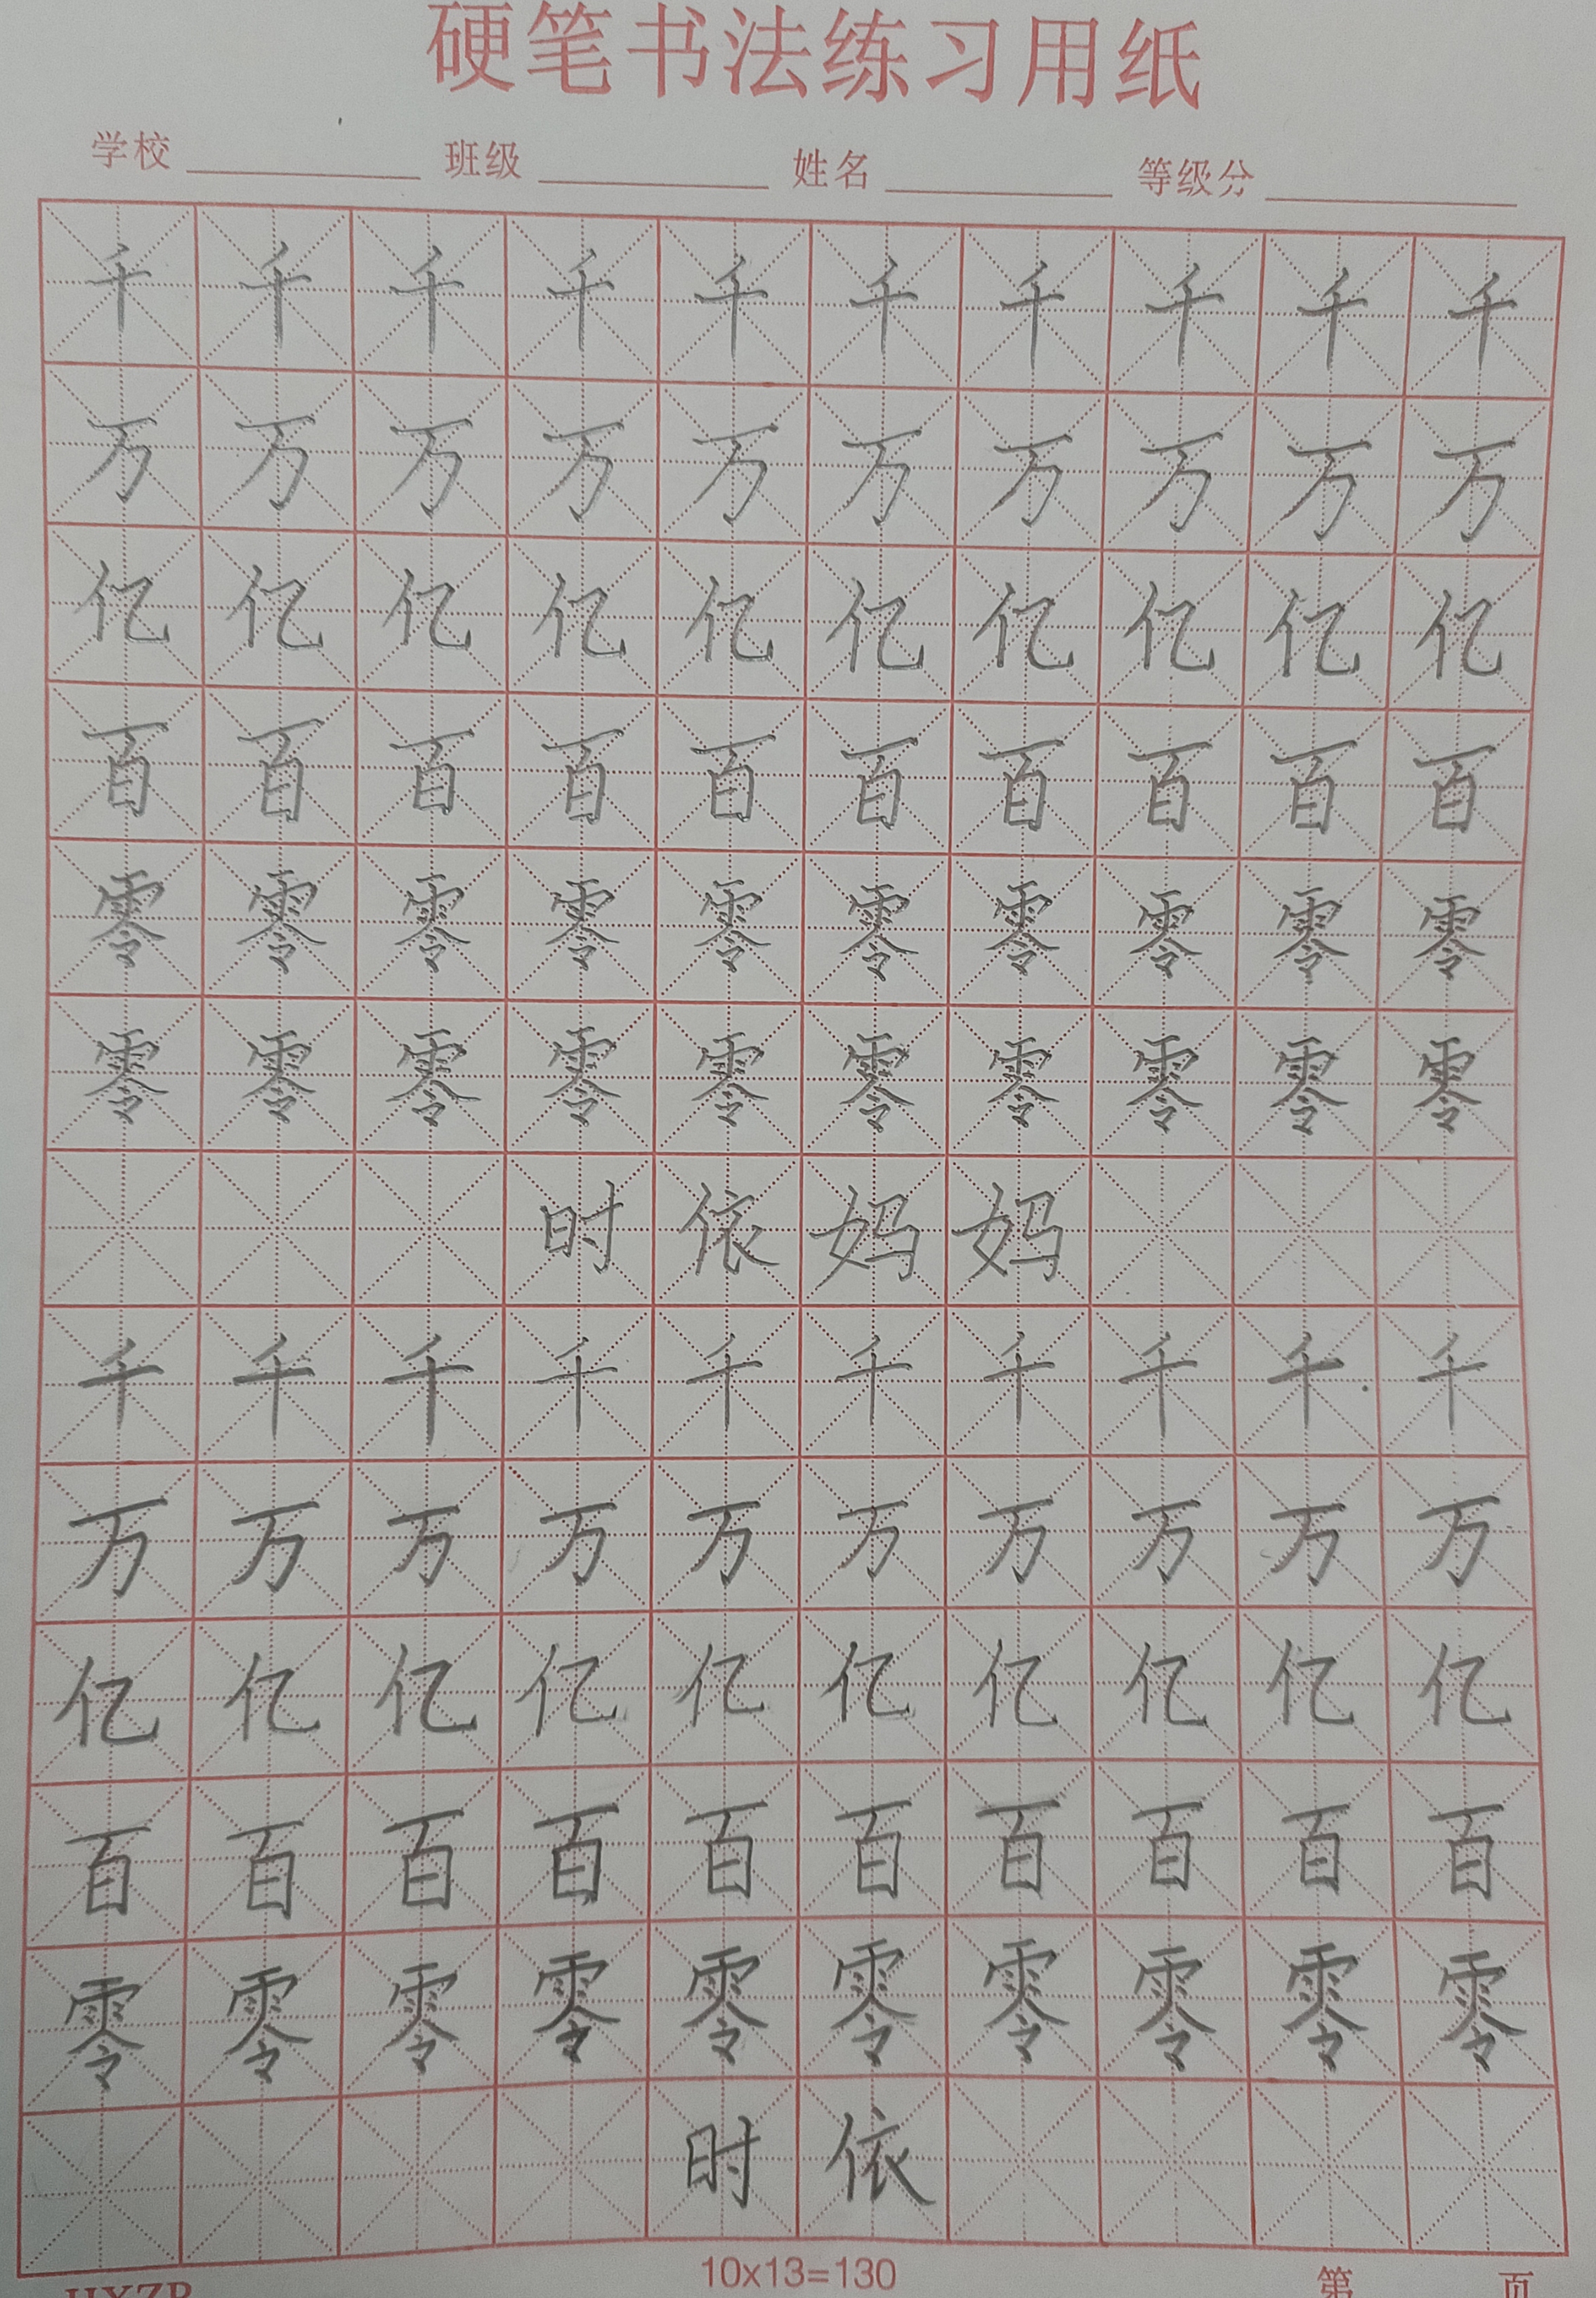 硬笔书法练习用纸
学校 班级 姓名 等级分
千千千千千千千千千千
万万万万万万万万万万
亿亿亿亿亿亿亿亿亿亿
百百百百百百百百百百
零零零零零零零零零零
零零零零零零零零零零
时依妈妈
千千千千千千千千千千
万万万万万万万万万万
亿亿亿亿亿亿亿亿亿亿
百百百百百百百百百百
零零零零零零零零零零
时依
10x13=130 第 页